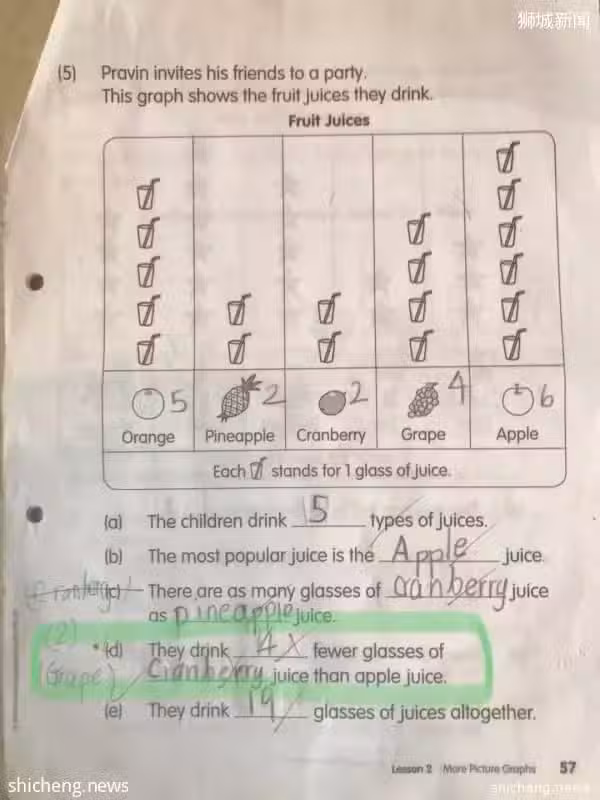 狮城新闻
(5) Pravin invites his friends to a party.
This graph shows the fruit juices they drink.
Fruit Juices
5 2 2 4 6
Orange Pineapple Cranberry Grape Apple
Each stands for 1 glass of juice.
(a) The children drink 5 types of juices.
(b) The most popular juice is the Apple juice.
(c) There are as many glasses of cranberry juice
as pineapple juice.
(2)
(d) They drink 4 fewer glasses of
(Grape) Cranberry juice than apple juice.
(e) They drink 19 glasses of juices altogether.
Lesson 2 More Picture Graphs 57
shicheng.news
shicheng.news